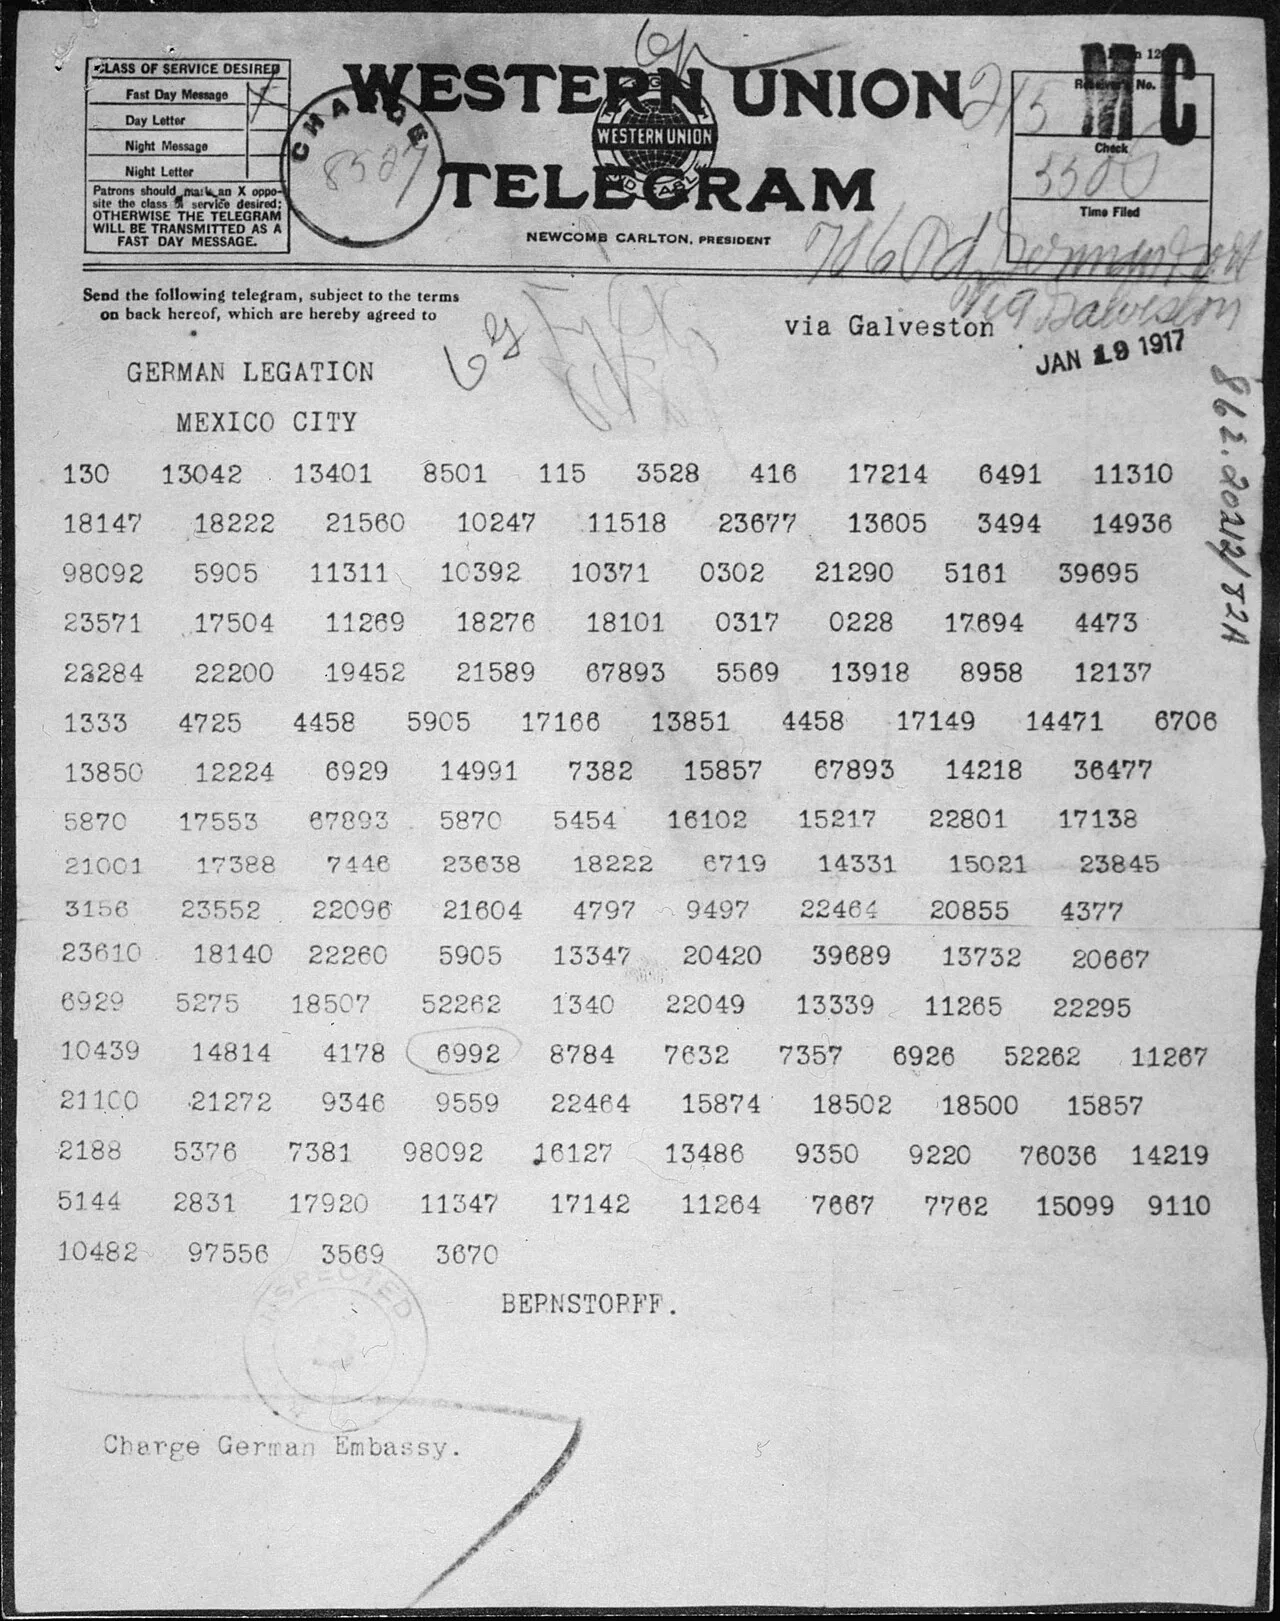 CLASS OF SERVICE DESIRED
Fast Day Message
Day Letter
Night Message
Night Letter
Patrons should mark an X oppo-
site the class of service desired;
OTHERWISE THE TELEGRAM
WILL BE TRANSMITTED AS A
FAST DAY MESSAGE.
CHARGE
8527
WESTERN UNION
WESTERN UNION
TELEGRAM
NEWCOMB CARLTON, PRESIDENT
215
MC
Receiver's No.
Check
Time Filed
Send the following telegram, subject to the terms
on back hereof, which are hereby agreed to
via Galveston
via Galveston
JAN 19 1917
GERMAN LEGATION
MEXICO CITY
862.20212/82A
130 13042 13401 8501 115 3528 416 17214 6491 11310
18147 18222 21560 10247 11518 23677 13605 3494 14936
98092 5905 11311 10392 10371 0302 21290 5161 39695
23571 17504 11269 18276 18101 0317 0228 17694 4473
22284 22200 19452 21589 67893 5569 13918 8958 12137
1333 4725 4458 5905 17166 13851 4458 17149 14471 6706
13850 12224 6929 14991 7382 15857 67893 14218 36477
5870 17553 67893 5870 5454 16102 15217 22801 17138
21001 17388 7446 23638 18222 6719 14331 15021 23845
3156 23552 22096 21604 4797 9497 22464 20855 4377
23610 18140 22260 5905 13347 20420 39689 13732 20667
6929 5275 18507 52262 1340 22049 13339 11265 22295
10439 14814 4178 6992 8784 7632 7357 6926 52262 11267
21100 21272 9346 9559 22464 15874 18502 18500 15857
2188 5376 7381 98092 16127 13486 9350 9220 76036 14219
5144 2831 17920 11347 17142 11264 7667 7762 15099 9110
10482 97556 3569 3670
BERNSTORFF.
INSPECTED
Charge German Embassy.